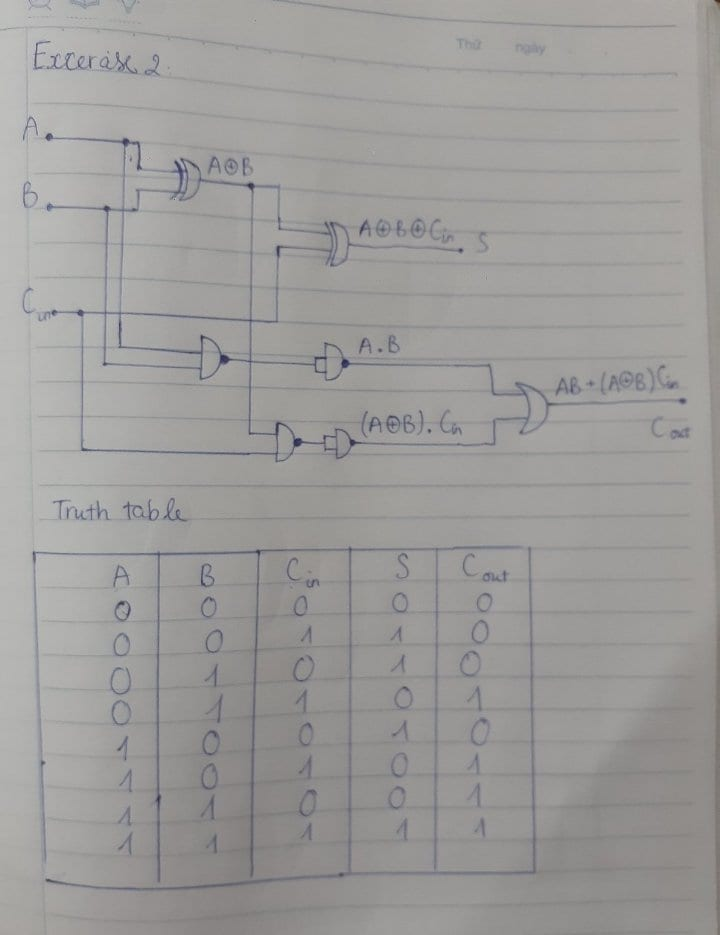 Thứ ngày
Excerise 2.
A
B
Cin
A⊕B
A⊕B⊕Cin S
A.B
(A⊕B).Cin
AB+(A⊕B)Cin
Cout
Truth table
A B Cin S Cout
0 0 0 0 0
0 0 1 1 0
0 1 0 1 0
0 1 1 0 1
1 0 0 1 0
1 0 1 0 1
1 1 0 0 1
1 1 1 1 1